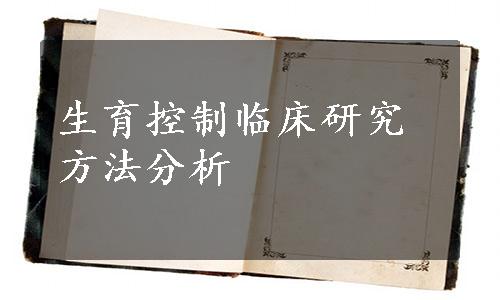 生育控制临床研究
方法分析